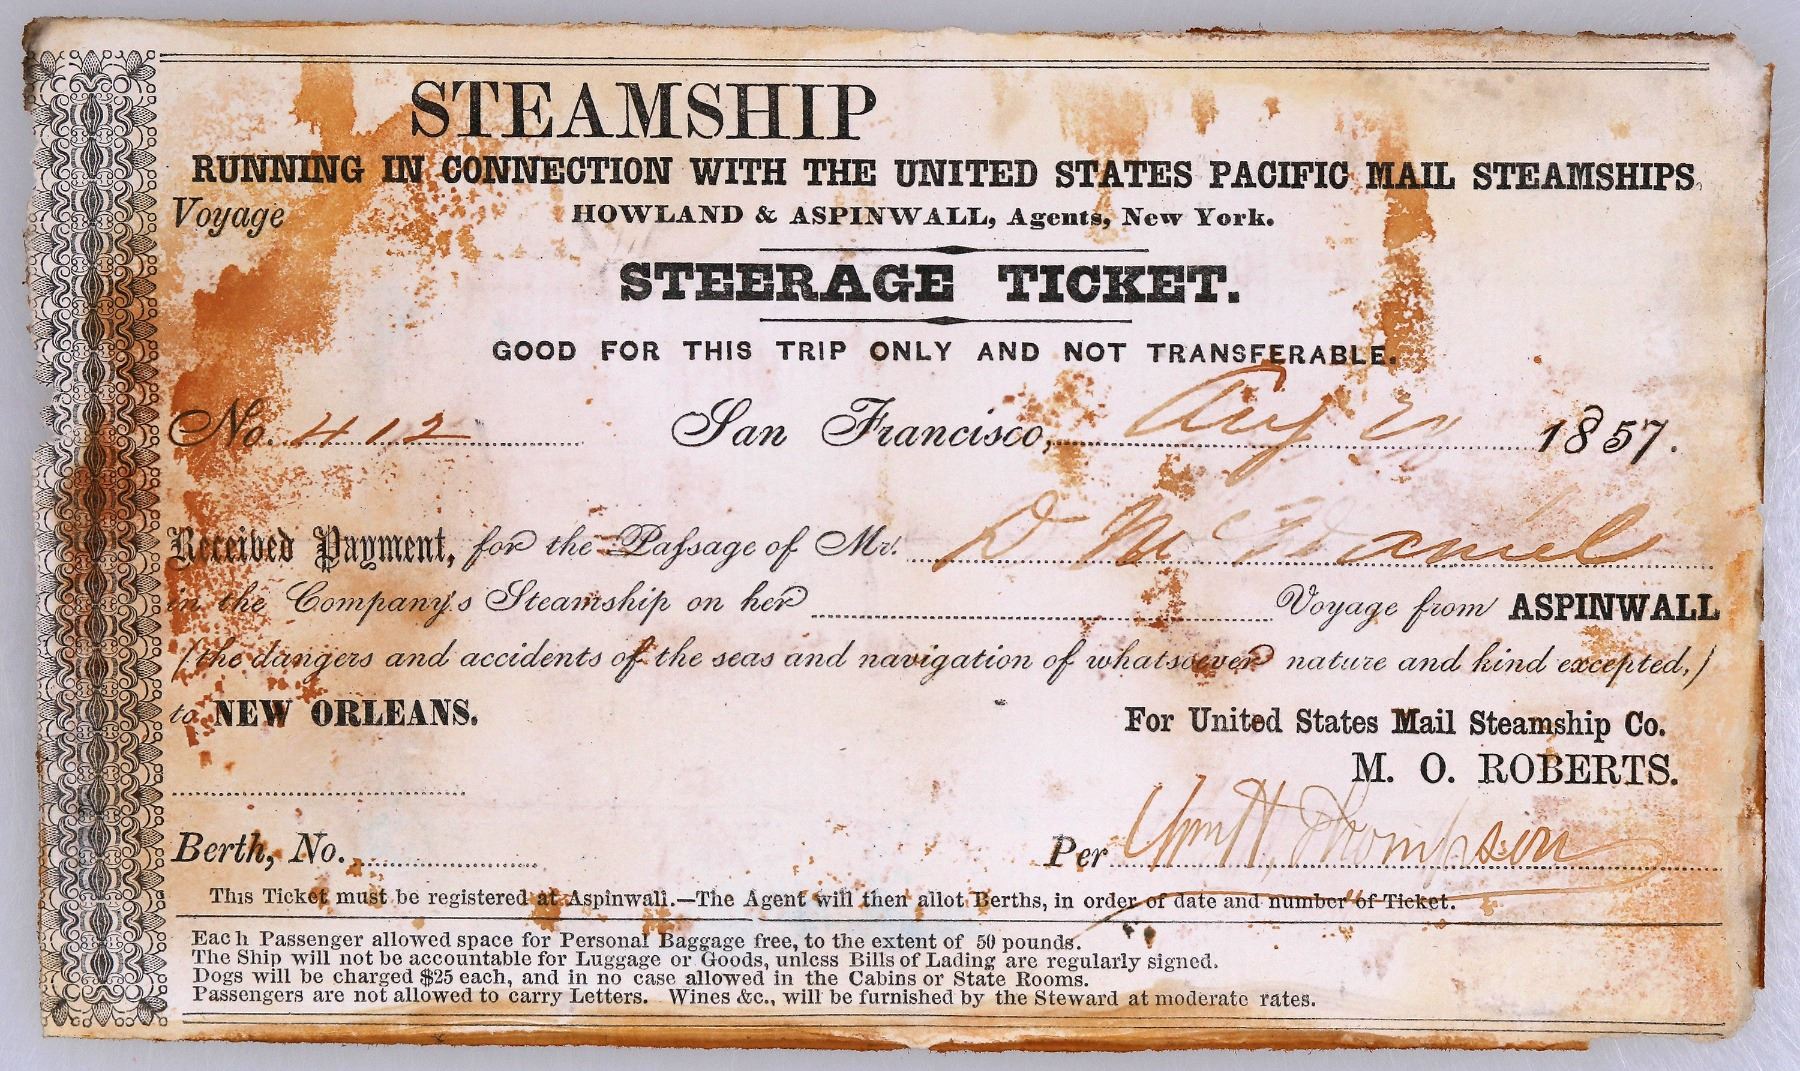 STEAMSHIP
RUNNING IN CONNECTION WITH THE UNITED STATES PACIFIC MAIL STEAMSHIPS,
Voyage HOWLAND & ASPINWALL, Agents, New York.
STEERAGE TICKET.
GOOD FOR THIS TRIP ONLY AND NOT TRANSFERABLE.
No. 412 San Francisco, Aug 1857.
Received Payment, for the Passage of Mr. D McDaniel
in the Company's Steamship on her Voyage from ASPINWALL
(the dangers and accidents of the seas and navigation of whatsoever nature and kind excepted,)
to NEW ORLEANS. For United States Mail Steamship Co.
M. O. ROBERTS.
Berth, No. Per Wm H. Thompson
This Ticket must be registered at Aspinwall.—The Agent will then allot Berths, in order of date and number of Ticket.
Each Passenger allowed space for Personal Baggage free, to the extent of 50 pounds.
The Ship will not be accountable for Luggage or Goods, unless Bills of Lading are regularly signed.
Dogs will be charged $25 each, and in no case allowed in the Cabins or State Rooms.
Passengers are not allowed to carry Letters. Wines &c., will be furnished by the Steward at moderate rates.